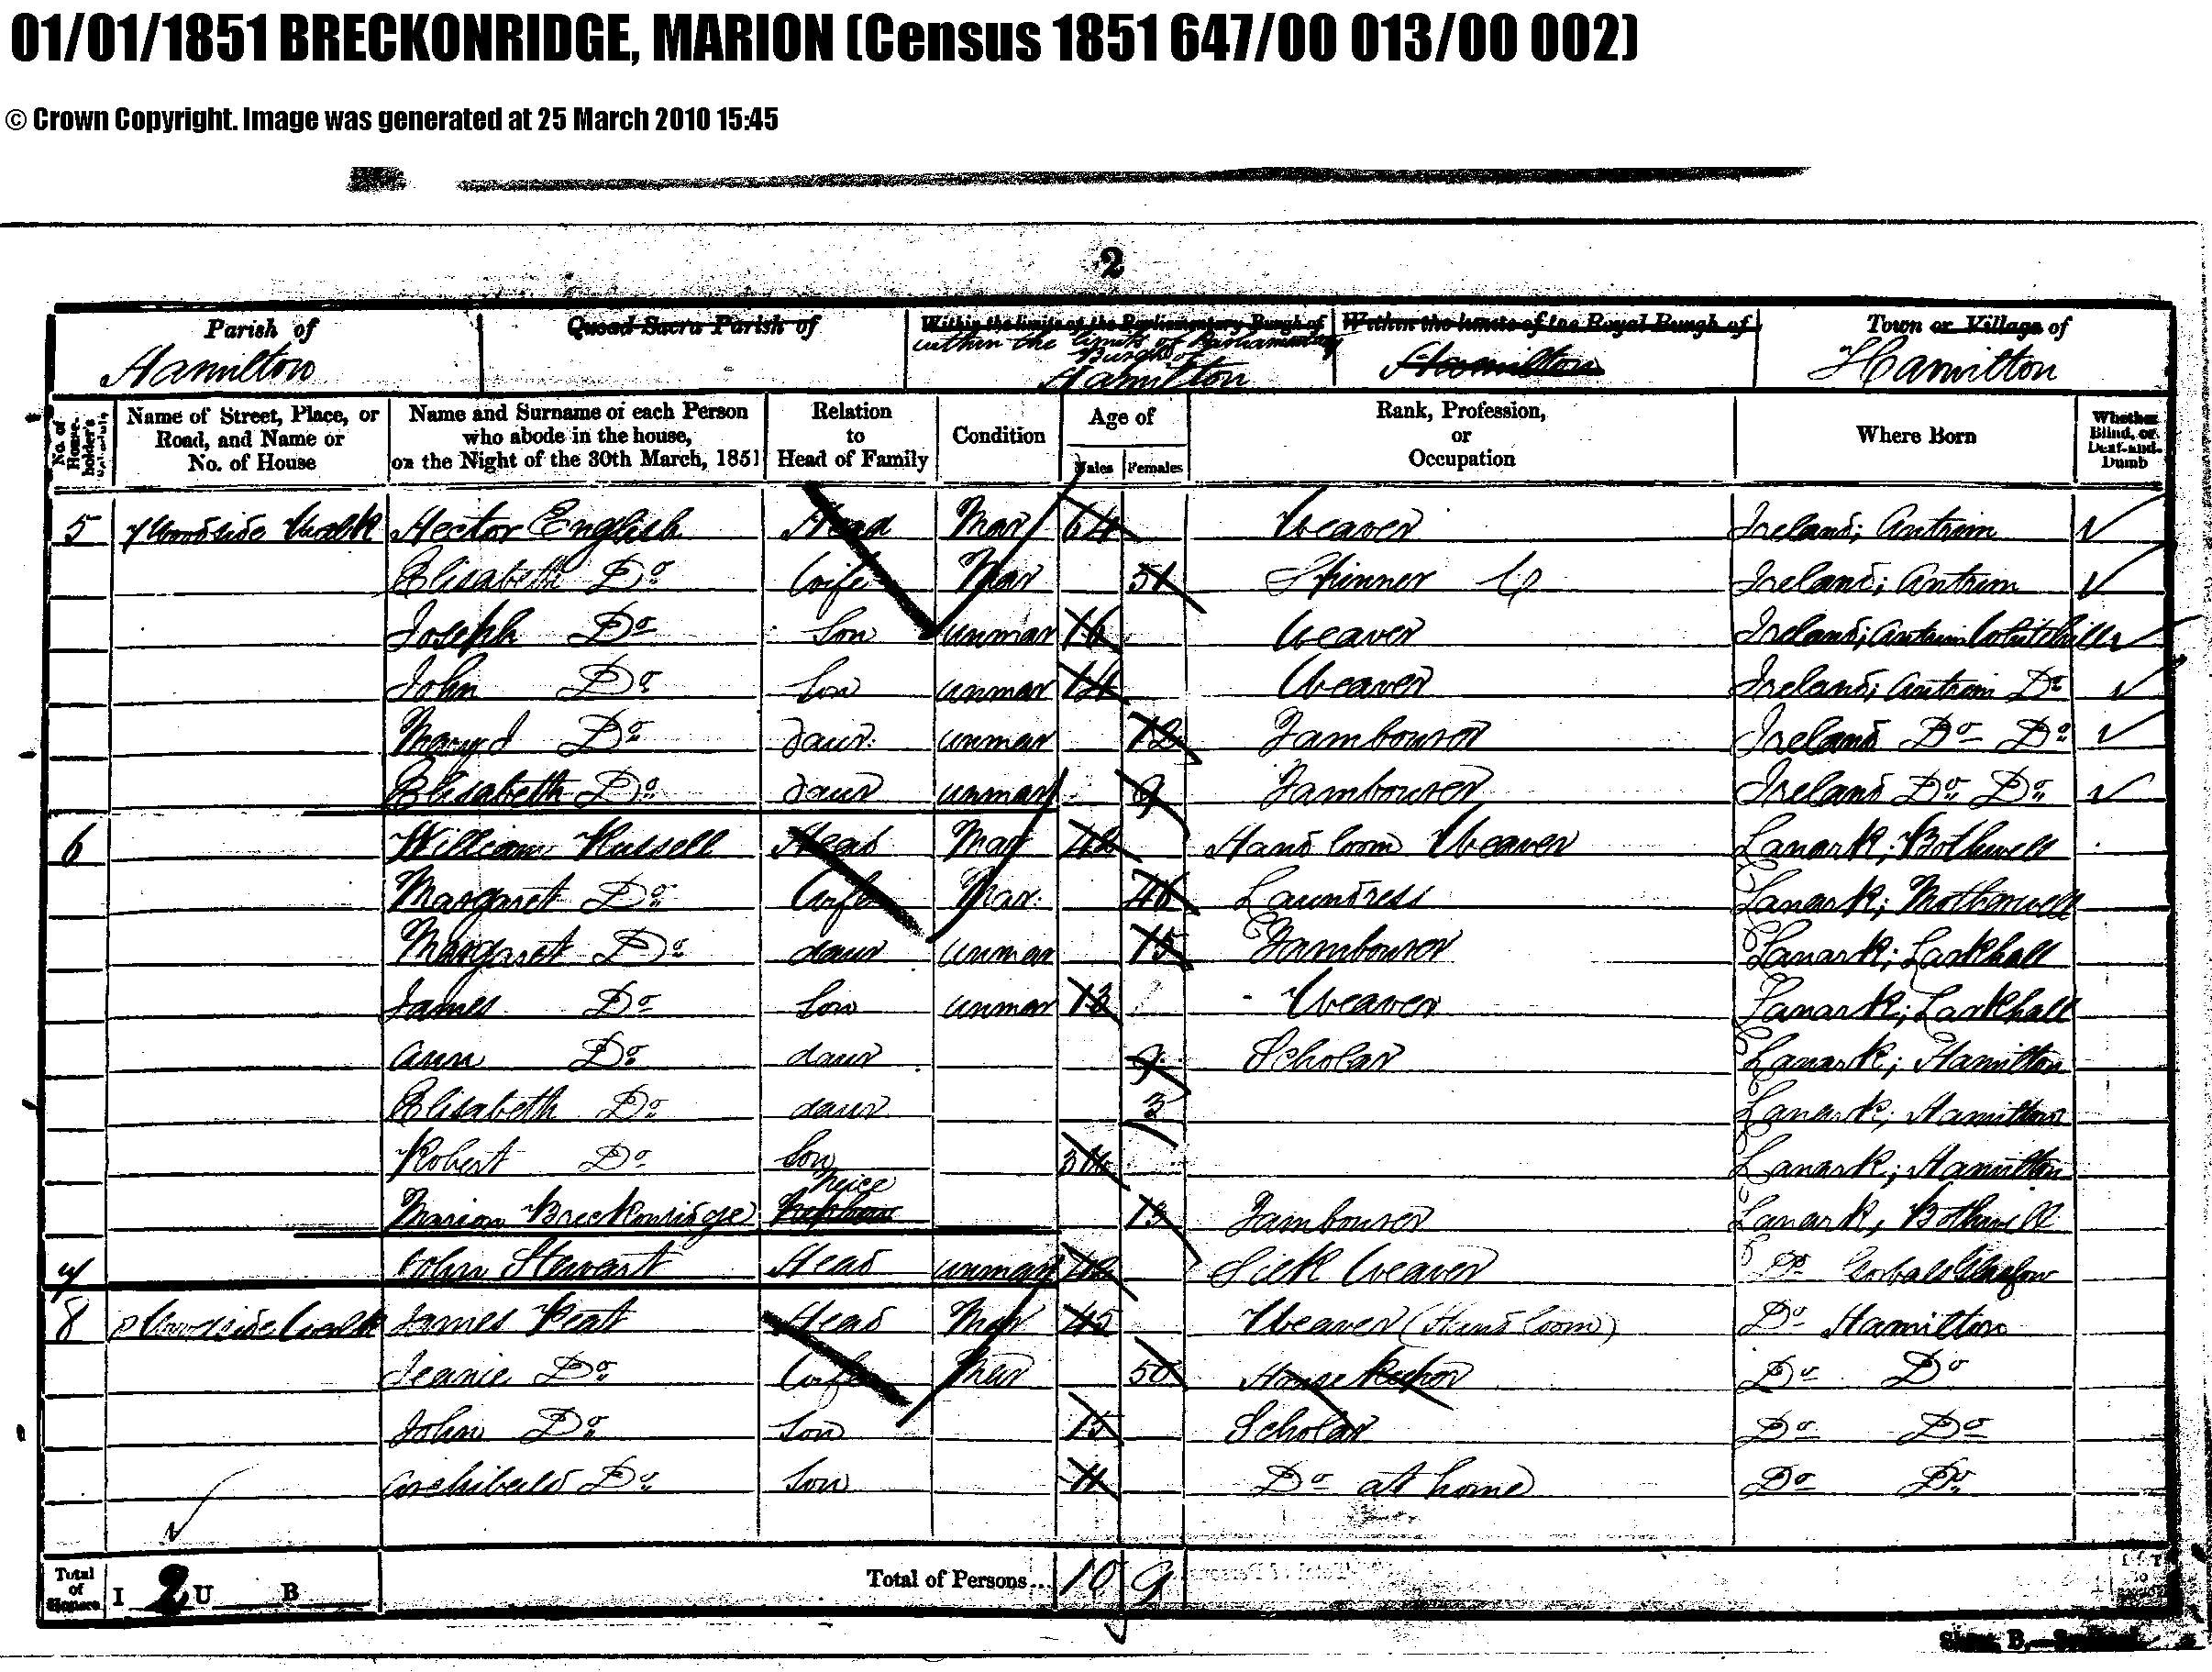 01/01/1851 BRECKONRIDGE, MARION (Census 1851 647/00 013/00 002)
© Crown Copyright. Image was generated at 25 March 2010 15:45
2
Parish of Hamilton
Quoad Sacra Parish of
Within the limits of the Parliamentary Burgh of
within the limits of Parliamentary Burgh of Hamilton
Within the limits of the Royal Burgh of Hamilton
Town or Village of Hamilton
No. of House-holder's Schedule
Name of Street, Place, or Road, and Name or No. of House
Name and Surname of each Person who abode in the house, on the Night of the 30th March, 1851
Relation to Head of Family
Condition
Age of
Males Females
Rank, Profession, or Occupation
Where Born
Whether Blind, or Deaf-and-Dumb
5 Woodside Walk Hector English Head Mar 64 Weaver Ireland; Antrim
Elisabeth Do Wife Mar 51 Spinner C Ireland; Antrim
Joseph Do Son unmar 16 Weaver Ireland; Antrim Whitehill
John Do Son unmar 14 Weaver Ireland; Antrim Do
Mary Do Daur. unmar 12 Tambourer Ireland Do Do
Elisabeth Do Daur unmar 9 Tambourer Ireland Do Do
6 William Russell Head Mar 42 Hand loom Weaver Lanark; Bothwell
Margaret Do Wife Mar. 46 Laundress Lanark; Motherwell
Margaret Do daur unmar 15 Tambourer Lanark; Larkhall
James Do Son unmar 13 Weaver Lanark; Larkhall
Ann Do daur 9 Scholar Lanark; Hamilton
Elisabeth Do daur 3 Lanark; Hamilton
Robert Do Son Lanark; Hamilton
Marion Breckonridge Nephew Neice 13 Tambourer Lanark; Bothwell
7 John Stewart Head unmar 42 Silk Weaver Do Gorbals Glasgow
8 Woodside Walk James Peat Head Mar 45 Weaver (Hand loom) Do Hamilton
Jeanie Do Wife Mar 50 House Keeper Do Do
John Do Son 15 Scholar Do Do
Archibald Do Son 11 Do at home Do Do
Total of Houses I 2 U B
Total of Persons... 10 9